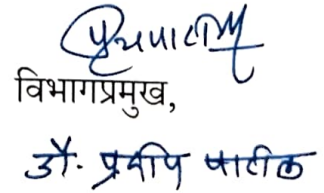 विभागप्रमुख,
डॉ. प्रदीप पाटील